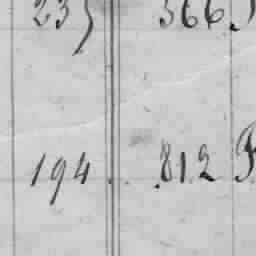 235 366
194 812